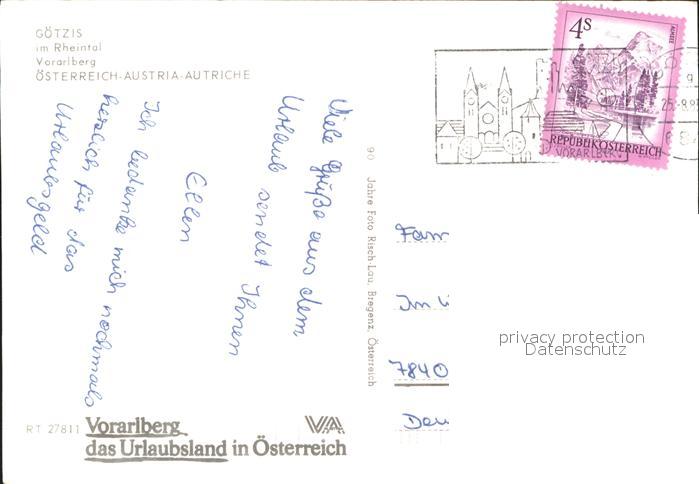 GÖTZIS
im Rheintal
Vorarlberg
ÖSTERREICH-AUSTRIA-AUTRICHE
Viele Grüße aus dem
Urlaub sendet Ihnen
Ellen
Ich bedanke mich nochmals
herzlich für das
Urlaubsgeld
RT 27811
Vorarlberg
das Urlaubsland in Österreich
VA
90 Jahre Foto Risch-Lau, Bregenz, Österreich
4S
ALMSEE
REPUBLIK ÖSTERREICH
VORARLBERG
25.-8.
Fam
Im
7840
Deu
privacy protection
Datenschutz